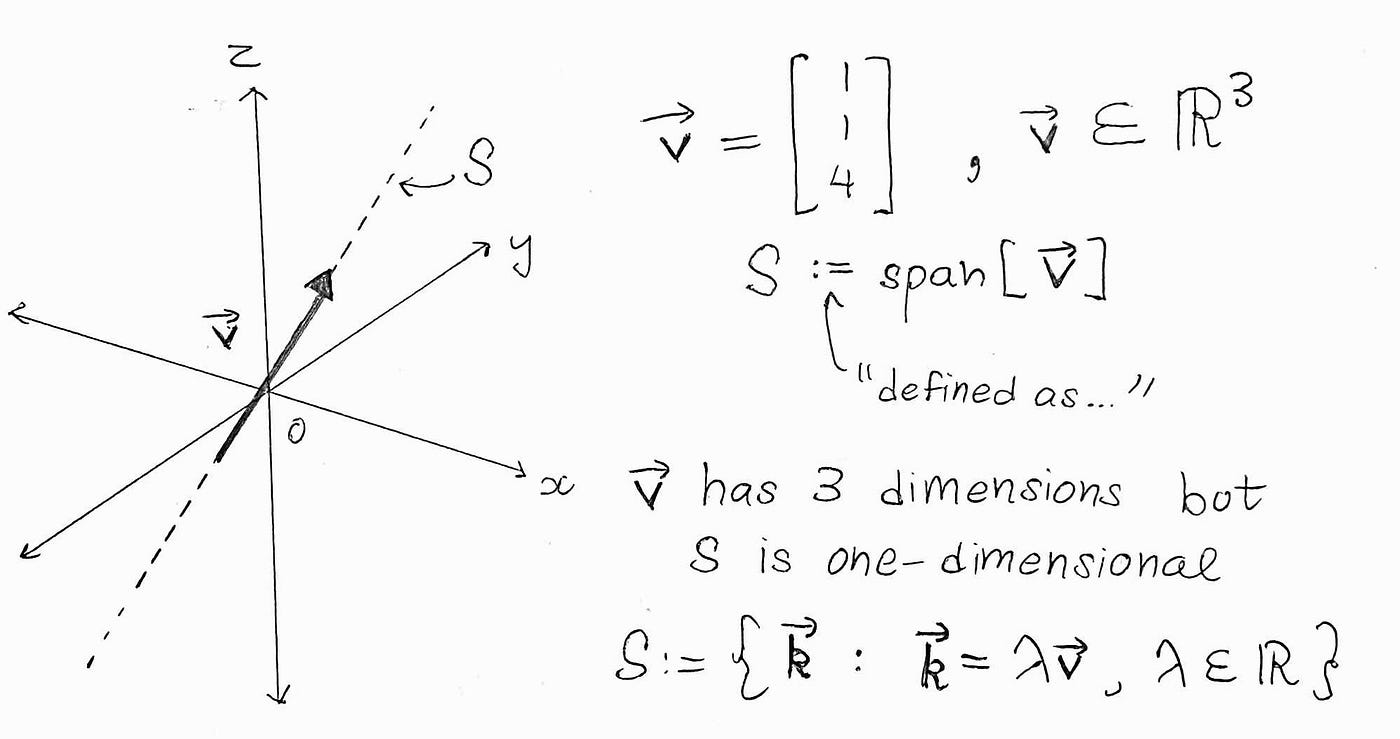 z
S
y
v⃗
0
x
v⃗ = [1 1 4] , v⃗ ∈ ℝ³
S := span[v⃗]
"defined as..."
v⃗ has 3 dimensions bot
S is one-dimensional
S := { k⃗ : k⃗ = λv⃗ , λ ∈ ℝ }